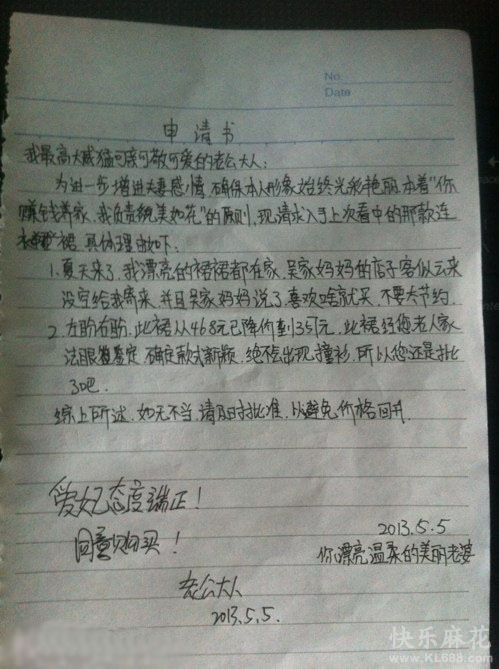 No.
Date
申请书
我最高大威猛可亲可敬可爱的老公大人:
为进一步增进夫妻感情,确保本人形象始终光彩艳丽,本着“你
赚钱养家,我负责貌美如花”的原则,现请求入手上次看中的那款连
衣裙,具体理由如下:
1.夏天来了,我漂亮的裙裙都在家,吴家妈妈的店子客似云来
没空给我寄来,并且吴家妈妈说了喜欢啥就买,不要太节约.
2.左盼右盼,此裙从468元已降价到351元,此裙经您老人家
法眼鉴定,确定款式新颖,绝不会出现撞衫,所以您还是批
了吧.
综上所述,如无不当,请及时批准,以避免价格回升.
爱妃态度端正!
同意购买!
2013.5.5
你漂亮温柔的美丽老婆
老公大人
2013.5.5.
快乐麻花
www.KL688.com